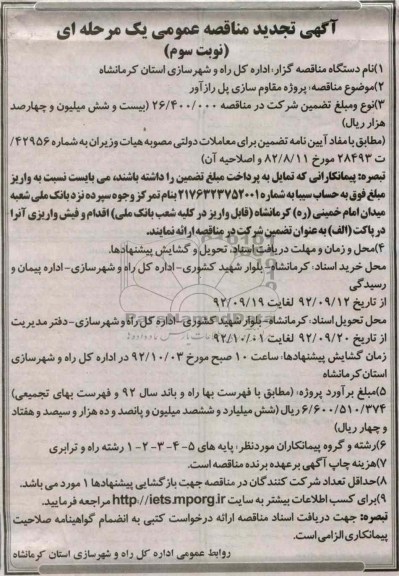 آگهی تجدید مناقصه عمومی یک مرحله ای
(نوبت سوم)
۱)نام دستگاه مناقصه گزار: اداره کل راه و شهرسازی استان کرمانشاه
۲)موضوع مناقصه: پروژه مقاوم سازی پل رازآور
۳)نوع ومبلغ تضمین شرکت در مناقصه ۲۶/۴۰۰/۰۰۰ (بیست و شش میلیون و چهارصد
هزار ریال)
(مطابق با مفاد آیین نامه تضمین برای معاملات دولتی مصوبه هیات وزیران به شماره ۴۲۹۵۶/
ت ۲۸۴۹۳ مورخ ۸۲/۸/۱۱ و اصلاحیه آن)
تبصره: پیمانکارانی که تمایل به پرداخت مبلغ تضمین را داشته باشند، می بایست نسبت به واریز
مبلغ فوق به حساب سیبا به شماره ۲۱۷۶۳۲۳۷۵۲۰۰۱ بنام تمرکز وجوه سپرده نزد بانک ملی شعبه
میدان امام خمینی (ره) کرمانشاه (قابل واریز در کلیه شعب بانک ملی) اقدام و فیش واریزی آنرا
در پاکت (الف) به عنوان تضمین شرکت در مناقصه ارائه نمایند.
۴)محل و زمان و مهلت دریافت اسناد، تحویل و گشایش پیشنهادها.
محل خرید اسناد: کرمانشاه- بلوار شهید کشوری- اداره کل راه و شهرسازی- اداره پیمان و
رسیدگی
از تاریخ ۹۲/۰۹/۱۲ لغایت ۹۲/۰۹/۱۹
محل تحویل اسناد: کرمانشاه- بلوار شهید کشوری- اداره کل راه و شهرسازی- دفتر مدیریت
از تاریخ ۹۲/۰۹/۲۰ لغایت ۹۲/۱۰/۰۱
زمان گشایش پیشنهادها: ساعت ۱۰ صبح مورخ ۹۲/۱۰/۰۳ در اداره کل راه و شهرسازی
استان کرمانشاه
۵)مبلغ برآورد پروژه: (مطابق با فهرست بها راه و باند سال ۹۲ و فهرست بهای تجمیعی)
۶/۶۰۰/۵۱۰/۳۷۴ ریال (شش میلیارد و ششصد میلیون و پانصد و ده هزار و سیصد و هفتاد
و چهار ریال)
۶)رشته و گروه پیمانکاران موردنظر: پایه های ۵-۴-۳-۲-۱ رشته راه و ترابری
۷)هزینه چاپ آگهی برعهده برنده مناقصه است.
۸)حداقل تعداد شرکت کنندگان در مناقصه جهت بازگشایی پیشنهادها ۱ مورد می باشد.
۹)برای کسب اطلاعات بیشتر به سایت http://iets.mporg.ir مراجعه فرمایید.
تبصره: جهت دریافت اسناد مناقصه ارائه درخواست کتبی به انضمام گواهینامه صلاحیت
پیمانکاری الزامی است.
روابط عمومی اداره کل راه و شهرسازی استان کرمانشاه